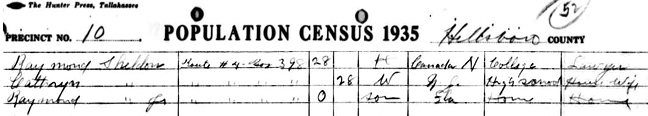 The Hunter Press, Tallahassee
52
PRECINCT NO. 10 POPULATION CENSUS 1935 Hillsboro COUNTY
Raymond Sheldon Route #4 Box 398 28 H Canada N College Lawyer
Cathryn " " " " " 28 W N. J. High school House Wife
Raymond " Jr " " " " 0 son Fla Home Home